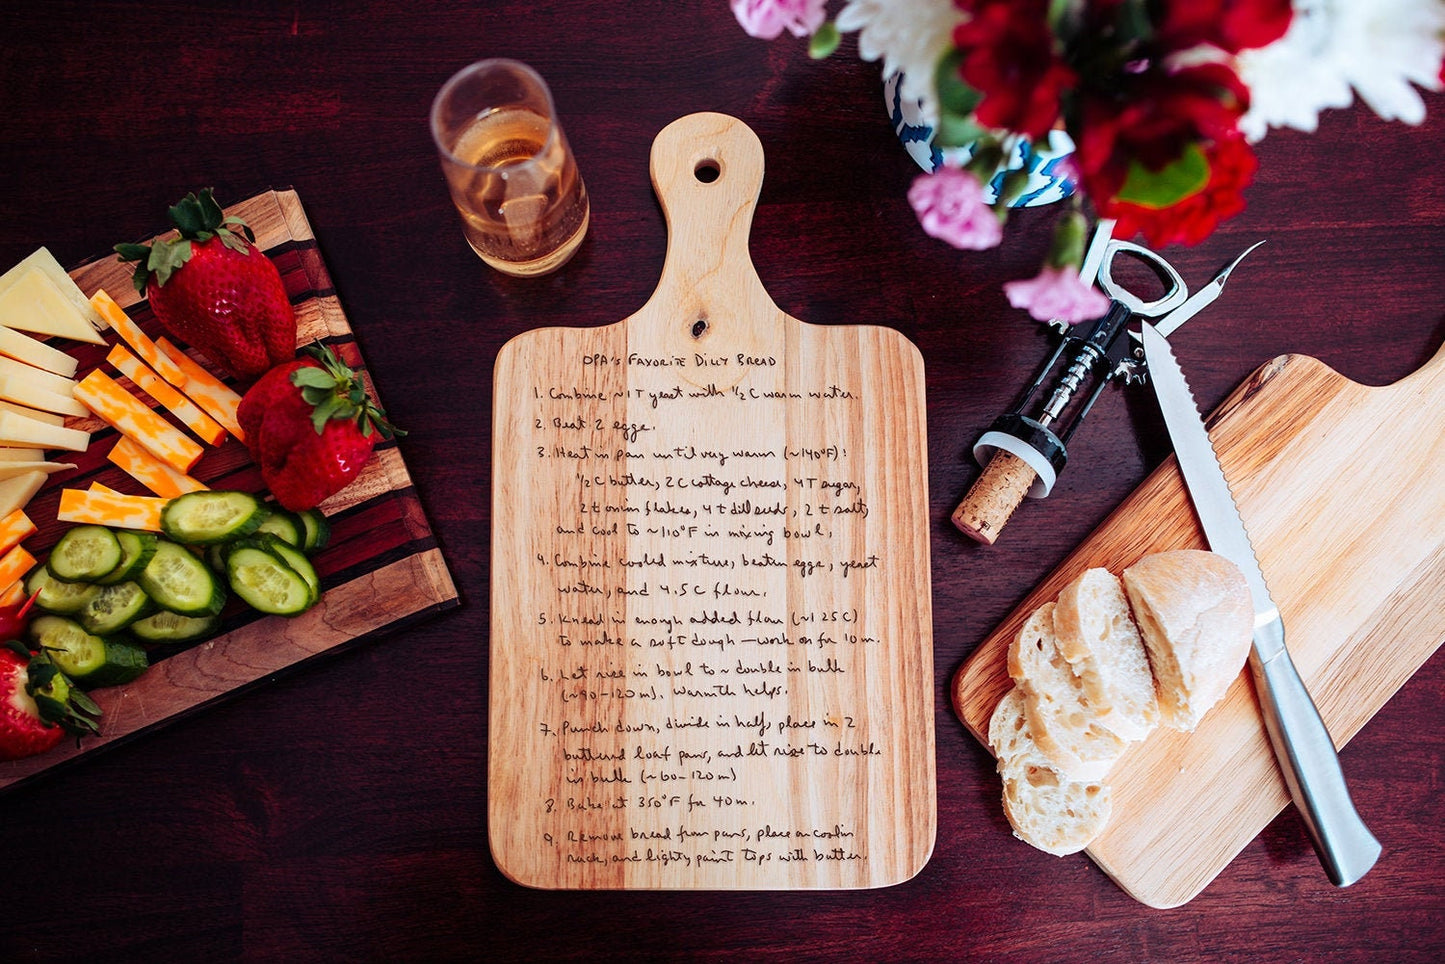 OPA's FAVORITE DILLY BREAD
1. Combine ~1 T yeast with ½ C warm water.
2. Beat 2 eggs.
3. Heat in pan until very warm (~140°F):
½ C butter, 2 C cottage cheese, 4 T sugar,
2 t onion flakes, 4 t dill seeds, 2 t salt,
and cool to ~110°F in mixing bowl.
4. Combine cooled mixture, beaten eggs, yeast
water, and 4.5 C flour.
5. Knead in enough added flour (~1.25 C)
to make a soft dough — work on for 10 m.
6. Let rise in bowl to ~ double in bulk
(~90-120 m). Warmth helps.
7. Punch down, divide in half, place in 2
buttered loaf pans, and let rise to double
in bulk (~60-120 m)
8. Bake at 350°F for 40 m.
9. Remove bread from pans, place on coolin
rack, and lightly paint tops with butter.